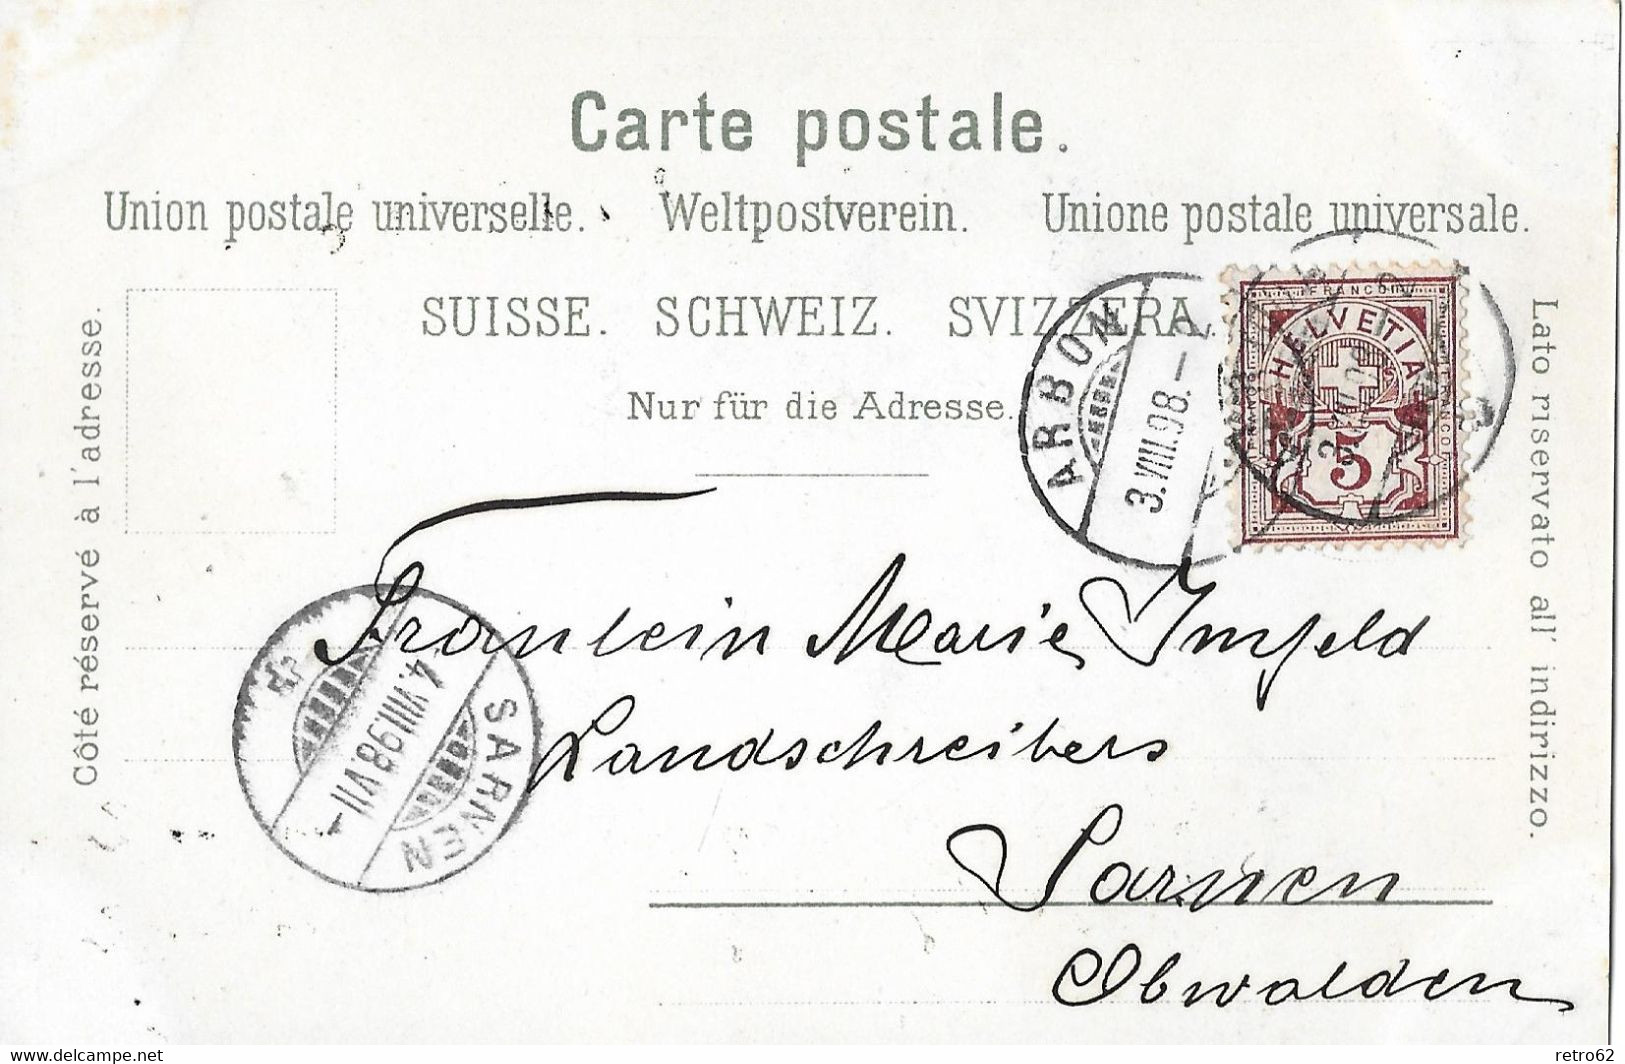 Carte postale.
Union postale universelle. Weltpostverein. Unione postale universale.
SUISSE. SCHWEIZ. SVIZZERA.
Nur für die Adresse.
Côté réservé à l'adresse.
Lato riservato all' indirizzo.
ARBON
3.VIII.98.–
FRANCO
HELVETIA
5
SARNEN
4.VIII.98.VII–
Fräulein Marie Imfeld
Landschreibers
Sarnen
Obwalden
www.delcampe.net
retro62